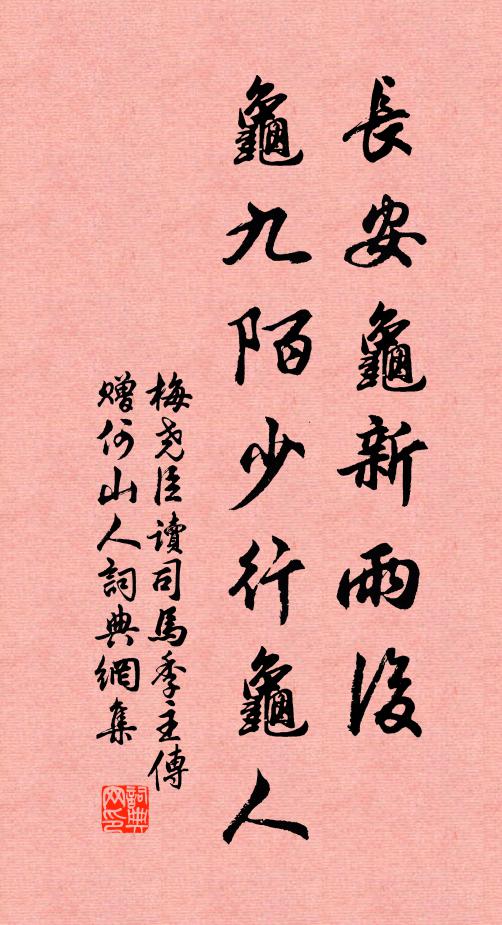 長安龜新雨後
龜九陌少行龜人
梅尧臣讀司馬季主傳
贈何山人詞典網集
詞典网印